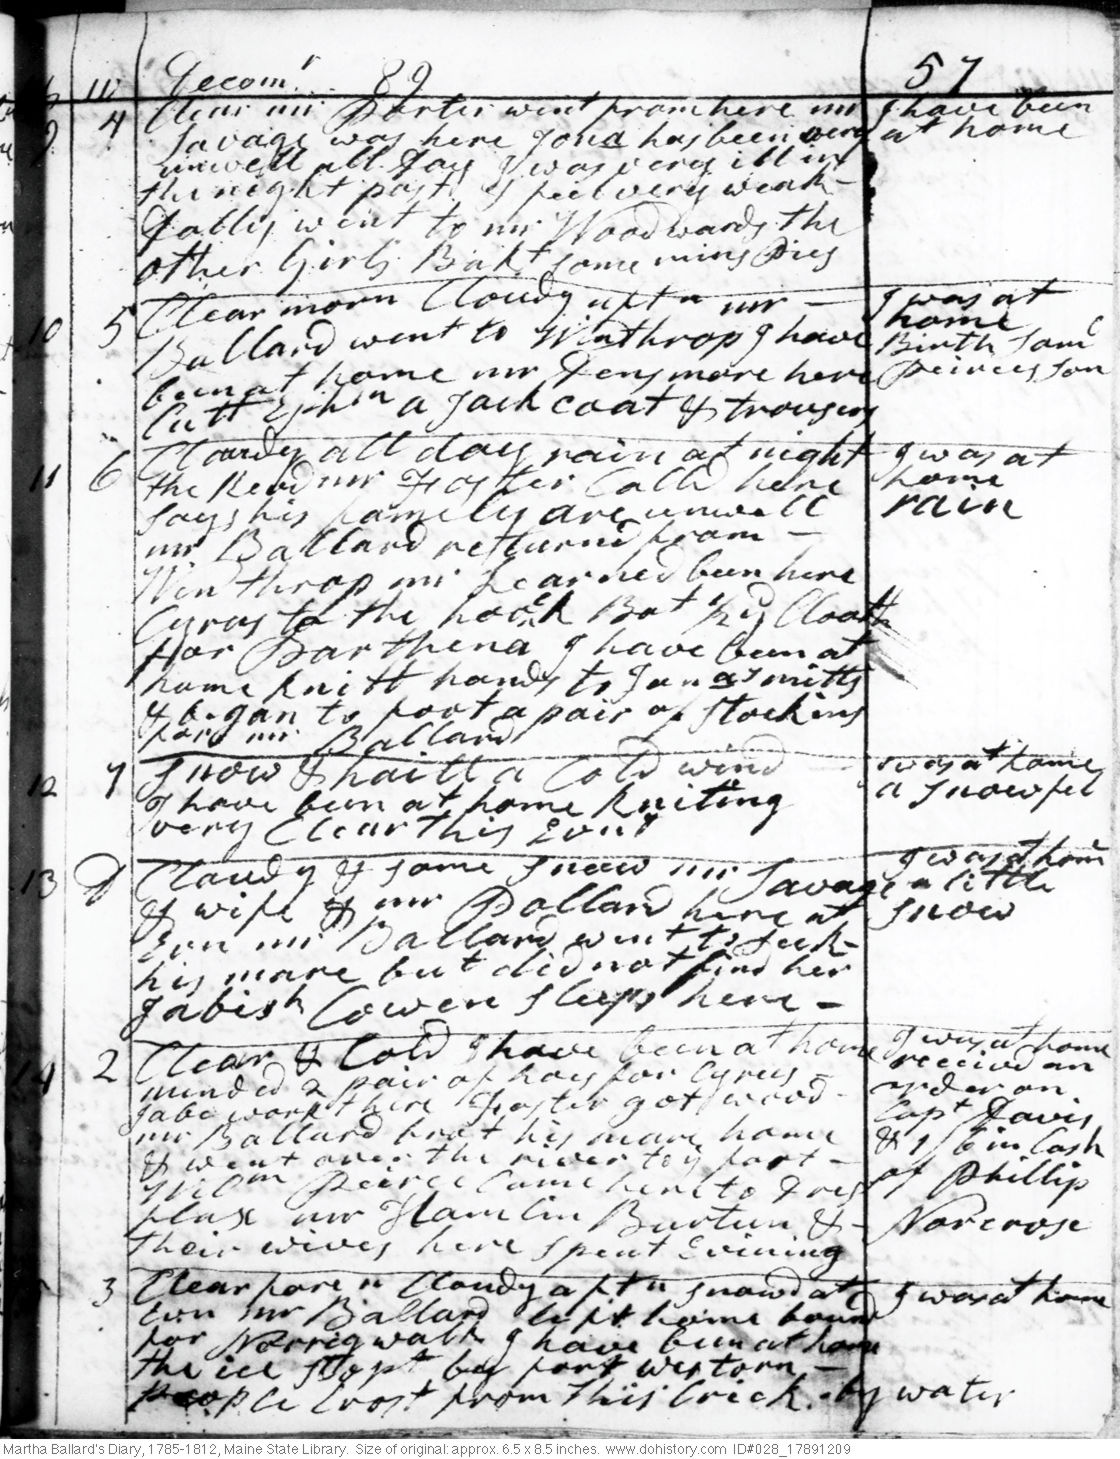 m Decem^r 89 57
9 4 Clear mr Porter went from here mr
Savage was here Jona has been very
unwell all Day I was very ill in
the night past, I feel very weak -
Dolly went to mr Woodwards the
other Girls Bakt some mins Pies
I have been
at home
10 5 Clear morn Cloudy aft n mr -
Ballard went to Winthrop I have
been at home mr Densmore here
Cutt Ephm a Jack coat & trousers
I was at
home
Birth Saml
Peirces Son
11 6 Cloudy all day rain at night
the Revd mr Foster Calld here
says his family are unwell
mr Ballard returnd from -
Winthrop mr Learned been here
Cyrus to the hook Bot Cloath
for Parthena I have been at
home Knitt hands to Jonas mitts
& began to foot a pair of Stockins
for mr Ballard
I was at
home
rain
12 7 Snow & haill a Cold wind
I have been at home Kniting
very Clear this Evng
was at home
a Snow fel
13 D Cloudy & some Snow mr Savage
& wife & mr Pollard here at
Evn mr Ballard went to seek
his mare but did not find her
Jabish Cowen Sleeps here -
I was at home
a little
Snow
14 2 Clear & Cold I have been at home
minded 2 pair of hoes for Cyrus -
Jabe workt here Foster got wood -
mr Ballard brot his mare home
& went over the river to ye fort -
Wilm Peirce Came here to Dres
flax mr Hamlin Burtun & -
their wives here spent Evining
I was at home
received an
order on
Capt Davis
& 1/6 in Cash
of Phillip
Norcrose
3 Clear fore n Cloudy aft n snowd at
Evn mr Ballard left home bound
for Norrigwalk I have been at home
the ice Stopt by fort western -
people Crost from this Crick by water
I was at home
Martha Ballard's Diary, 1785-1812, Maine State Library. Size of original: approx. 6.5 x 8.5 inches. www.dohistory.com ID#028_17891209